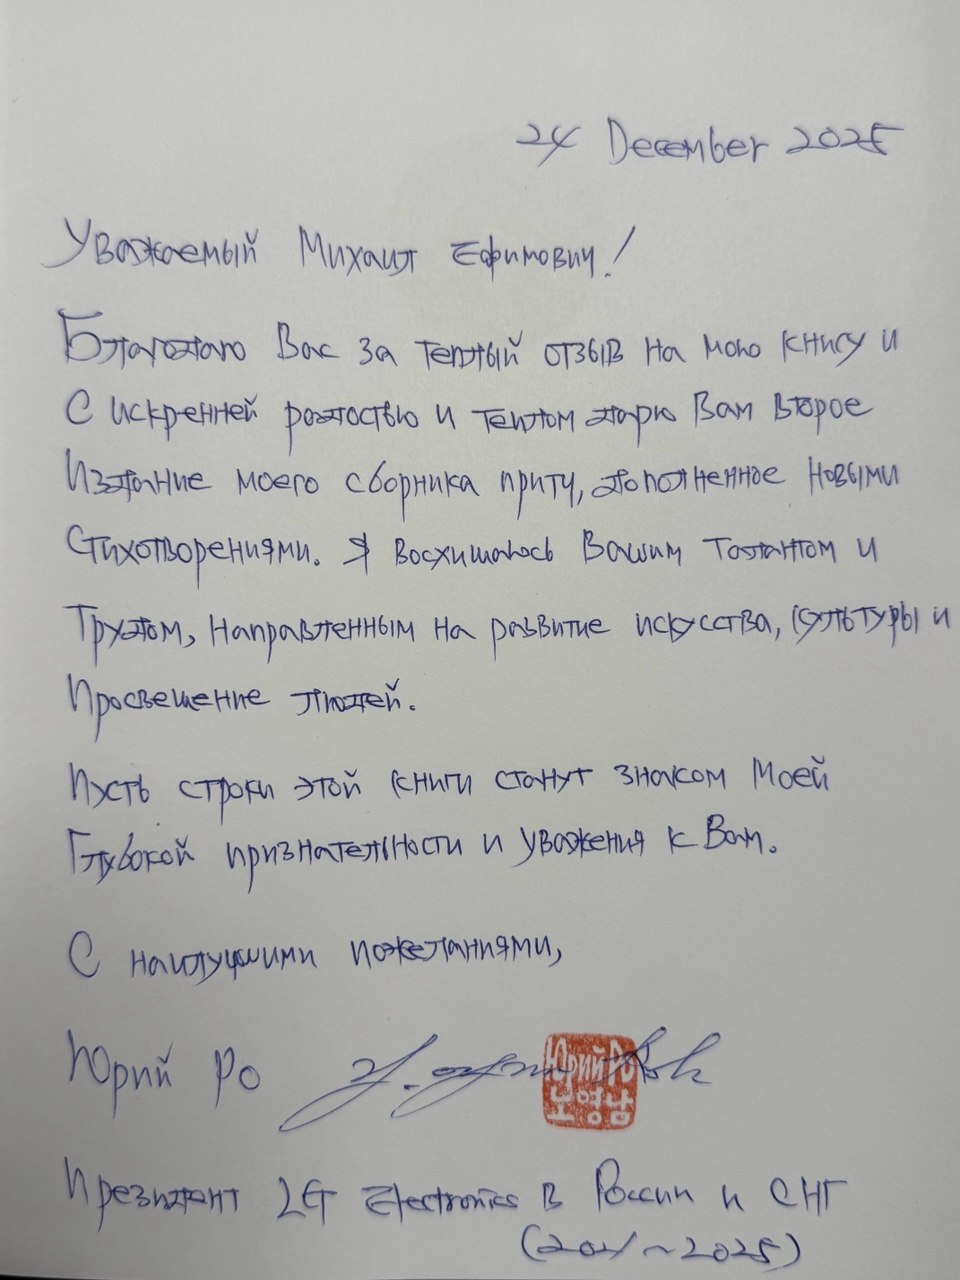 24 December 2025
Уважаемый Михаил Ефимович!
Благодарю Вас за теплый отзыв на мою книгу и
С искренней радостью и теплом дарю Вам второе
Издание моего сборника притч, дополненное новыми
Стихотворениями. Я восхищаюсь Вашим талантом и
Трудом, направленным на развитие искусства, культуры и
Просвещение людей.
Пусть строки этой книги станут знаком моей
Глубокой признательности и уважения к Вам.
С наилучшими пожеланиями,
Юрий Ро
Юрий Ро
노영남
Президент LG Electronics в России и СНГ
(2021~2025)